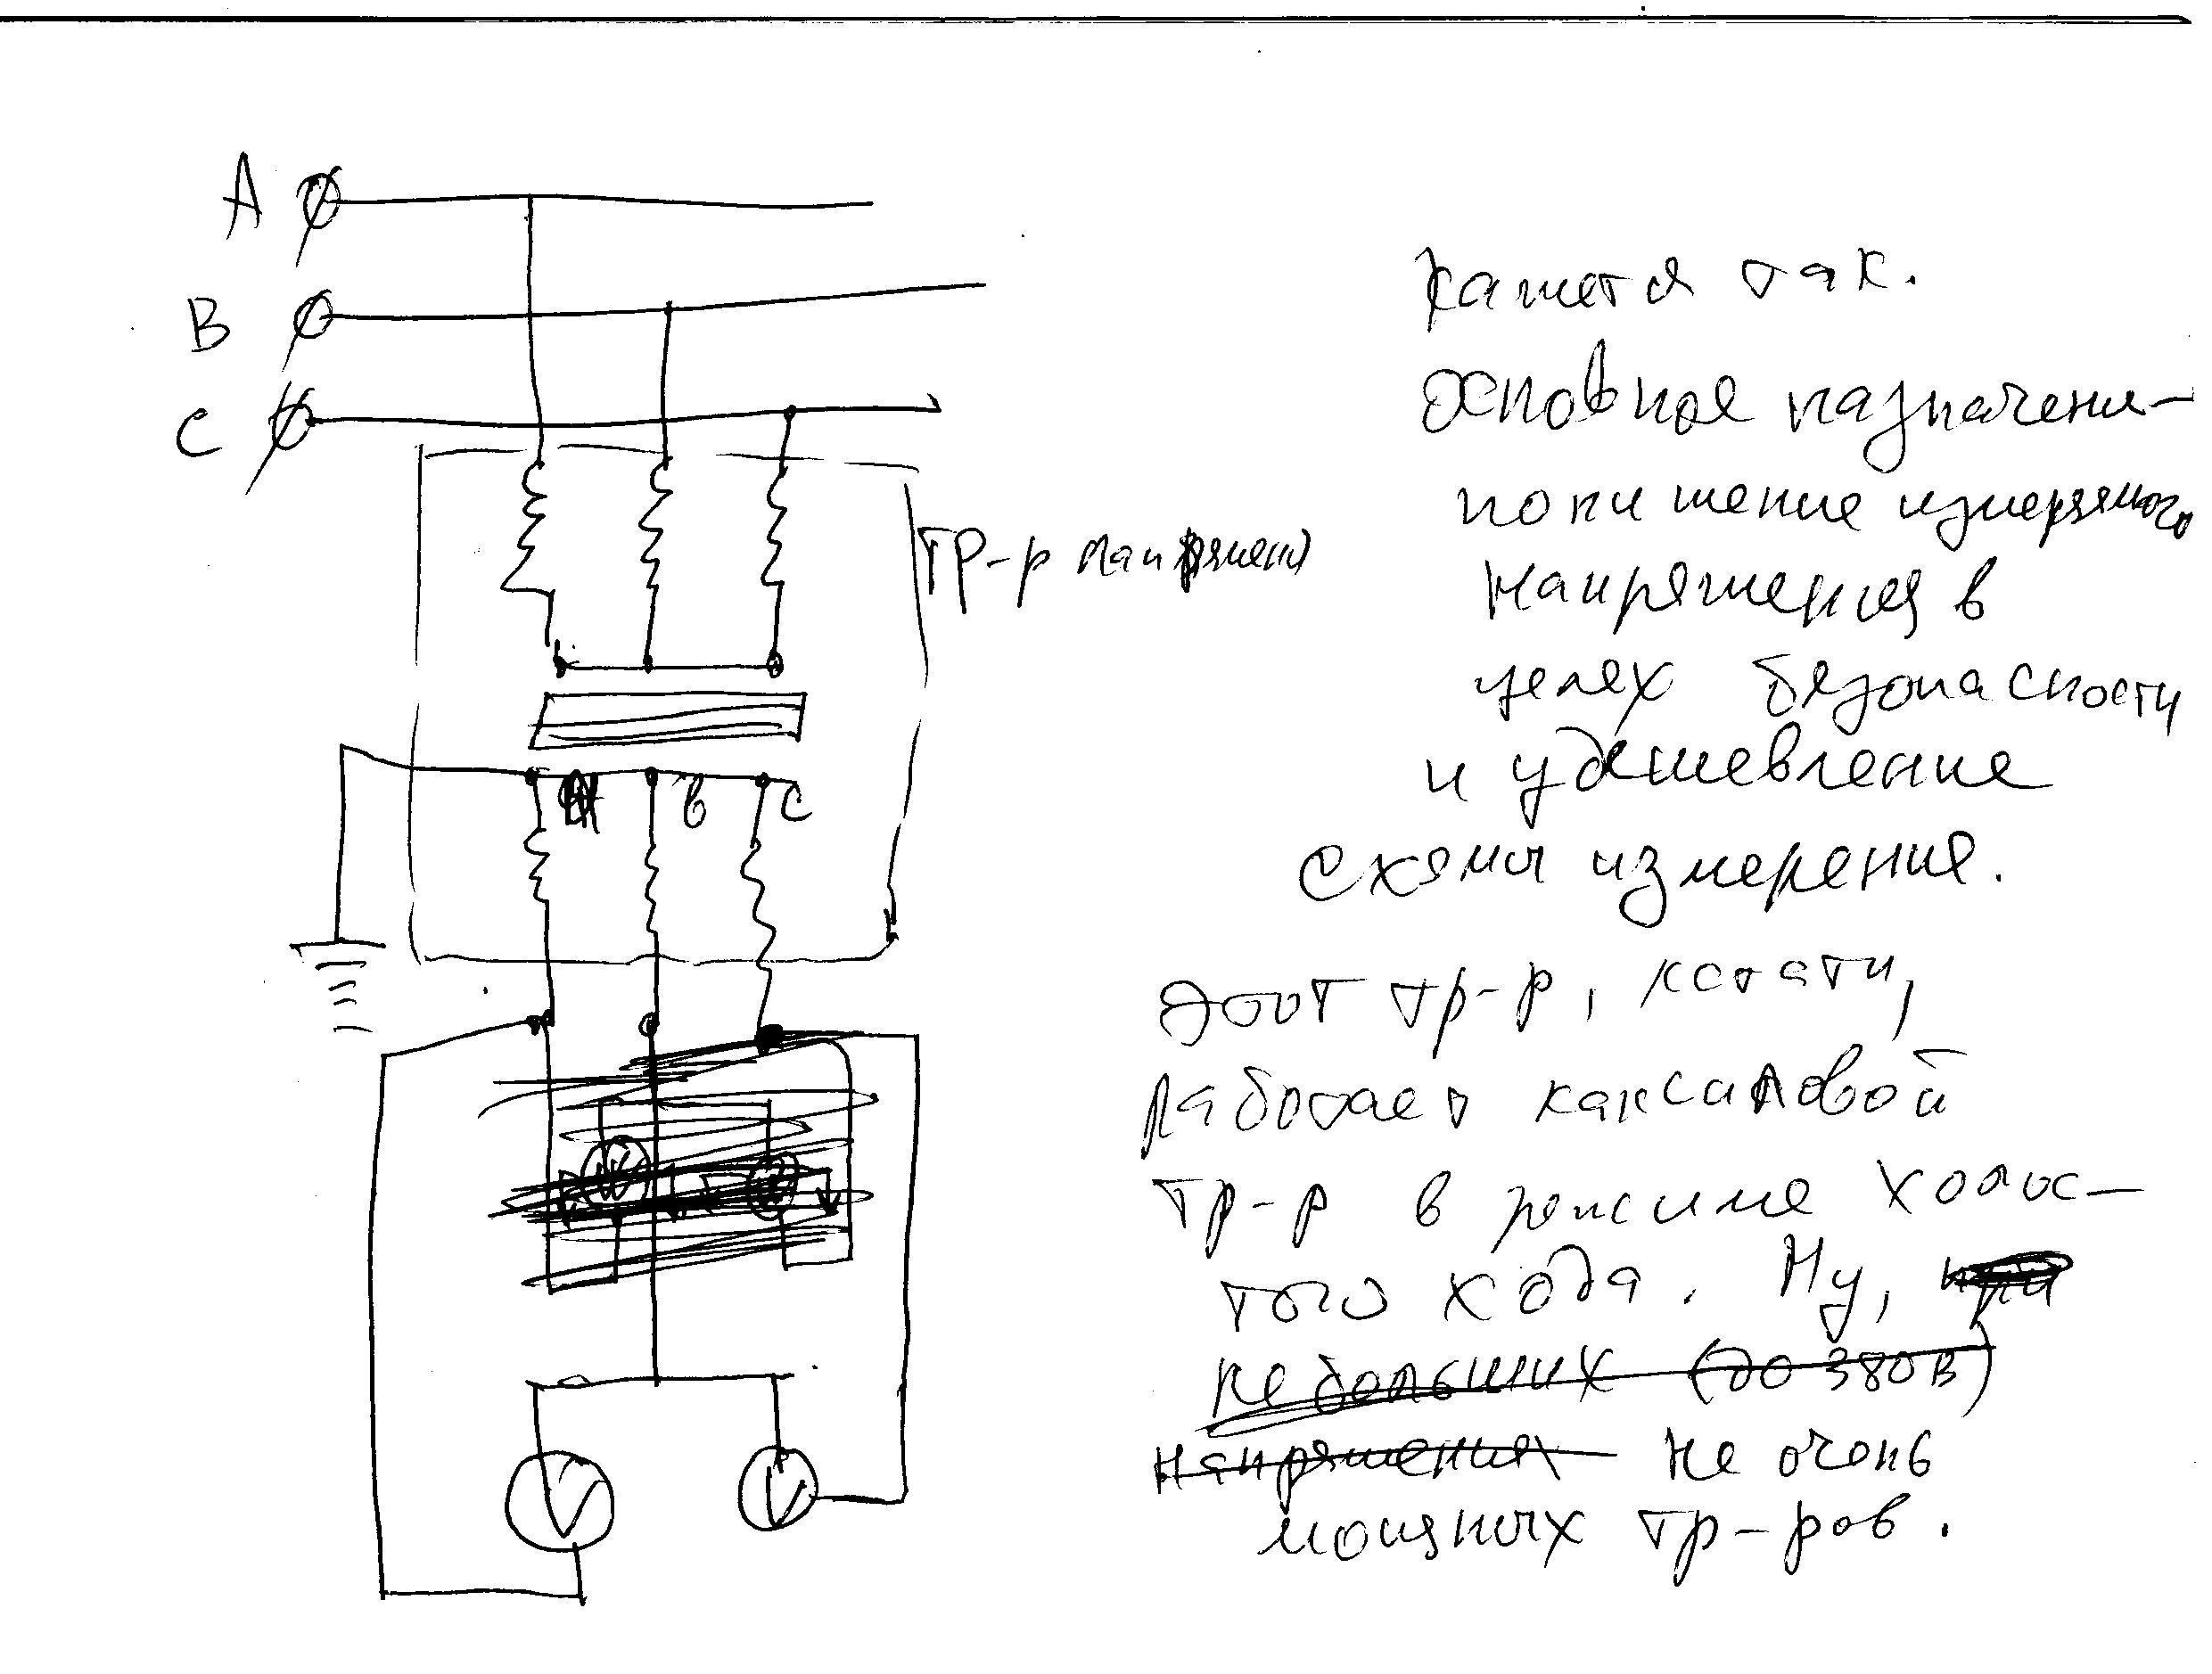 A
B
C
тр-р напряжени
В С
V V
кажется так.
основное назначени-
понижение измеряемого
напряжения в
целях безопасности
и удешевление
схемы измерения.
Этот тр-р, кстати,
работает как силовой
тр-р в режиме холос-
того хода. Ну,
небольших (до 380В)
напряжениях не очень
мощных тр-ров.